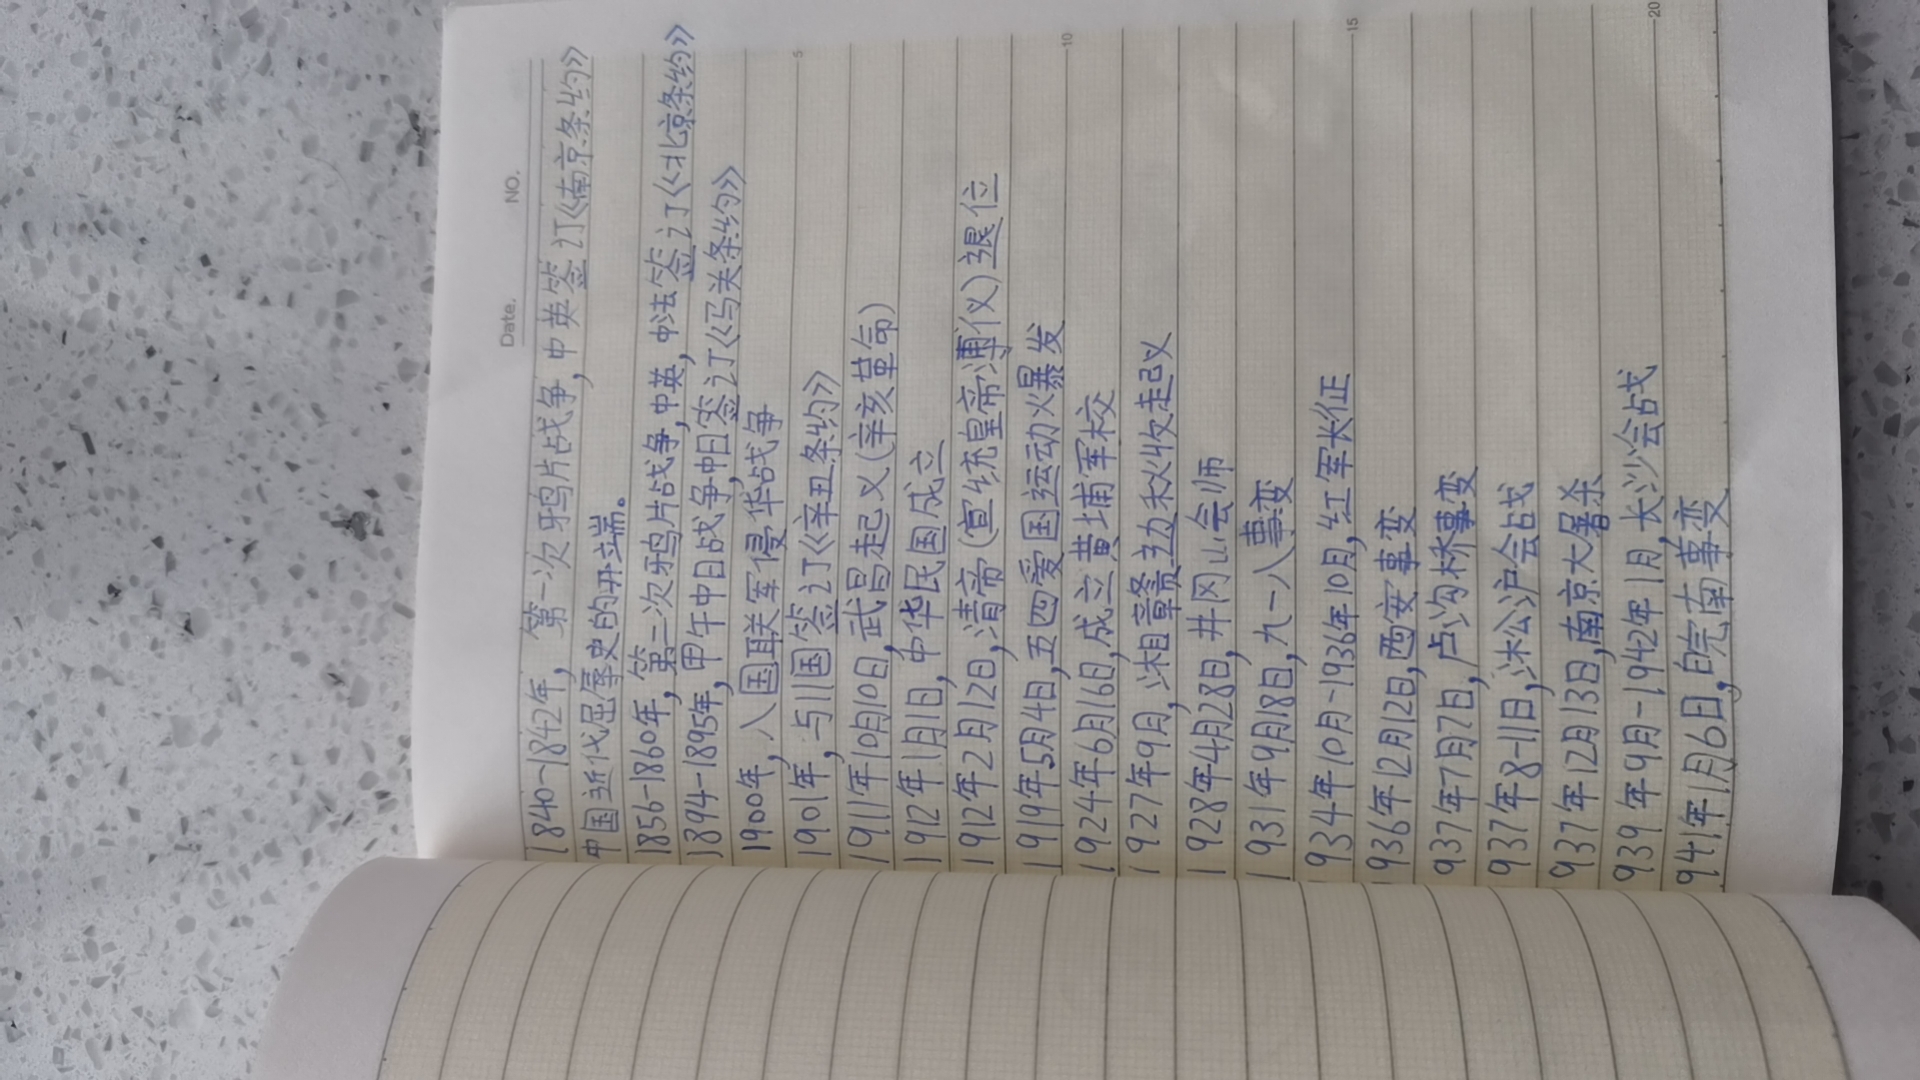 Date. NO.
1840-1842年,第一次鸦片战争,中英签订《南京条约》
中国近代屈辱史的开端。
1856-1860年,第二次鸦片战争,中英,中法签订《北京条约》
1894-1895年,甲午中日战争,中日签订《马关条约》
1900年,八国联军侵华战争
5
1901年,与11国签订《辛丑条约》
1911年10月10日,武昌起义(辛亥革命)
1912年1月1日,中华民国成立
1912年2月12日,清帝(宣统皇帝溥仪)退位
1919年5月4日,五四爱国运动火暴发
10
1924年6月16日,成立黄埔军校
1927年9月,湘赣边秋收起义
1928年4月28日,井冈山会师
1931年9月18日,九一八事变
1934年10月-1936年10月,红军长征
15
1936年12月12日,西安事变
1937年7月7日,卢沟桥事变
937年8-11日,淞沪会战
937年12月13日,南京大屠杀
939年9月-1942年1月,长沙会战
20
941年1月6日,皖南事变